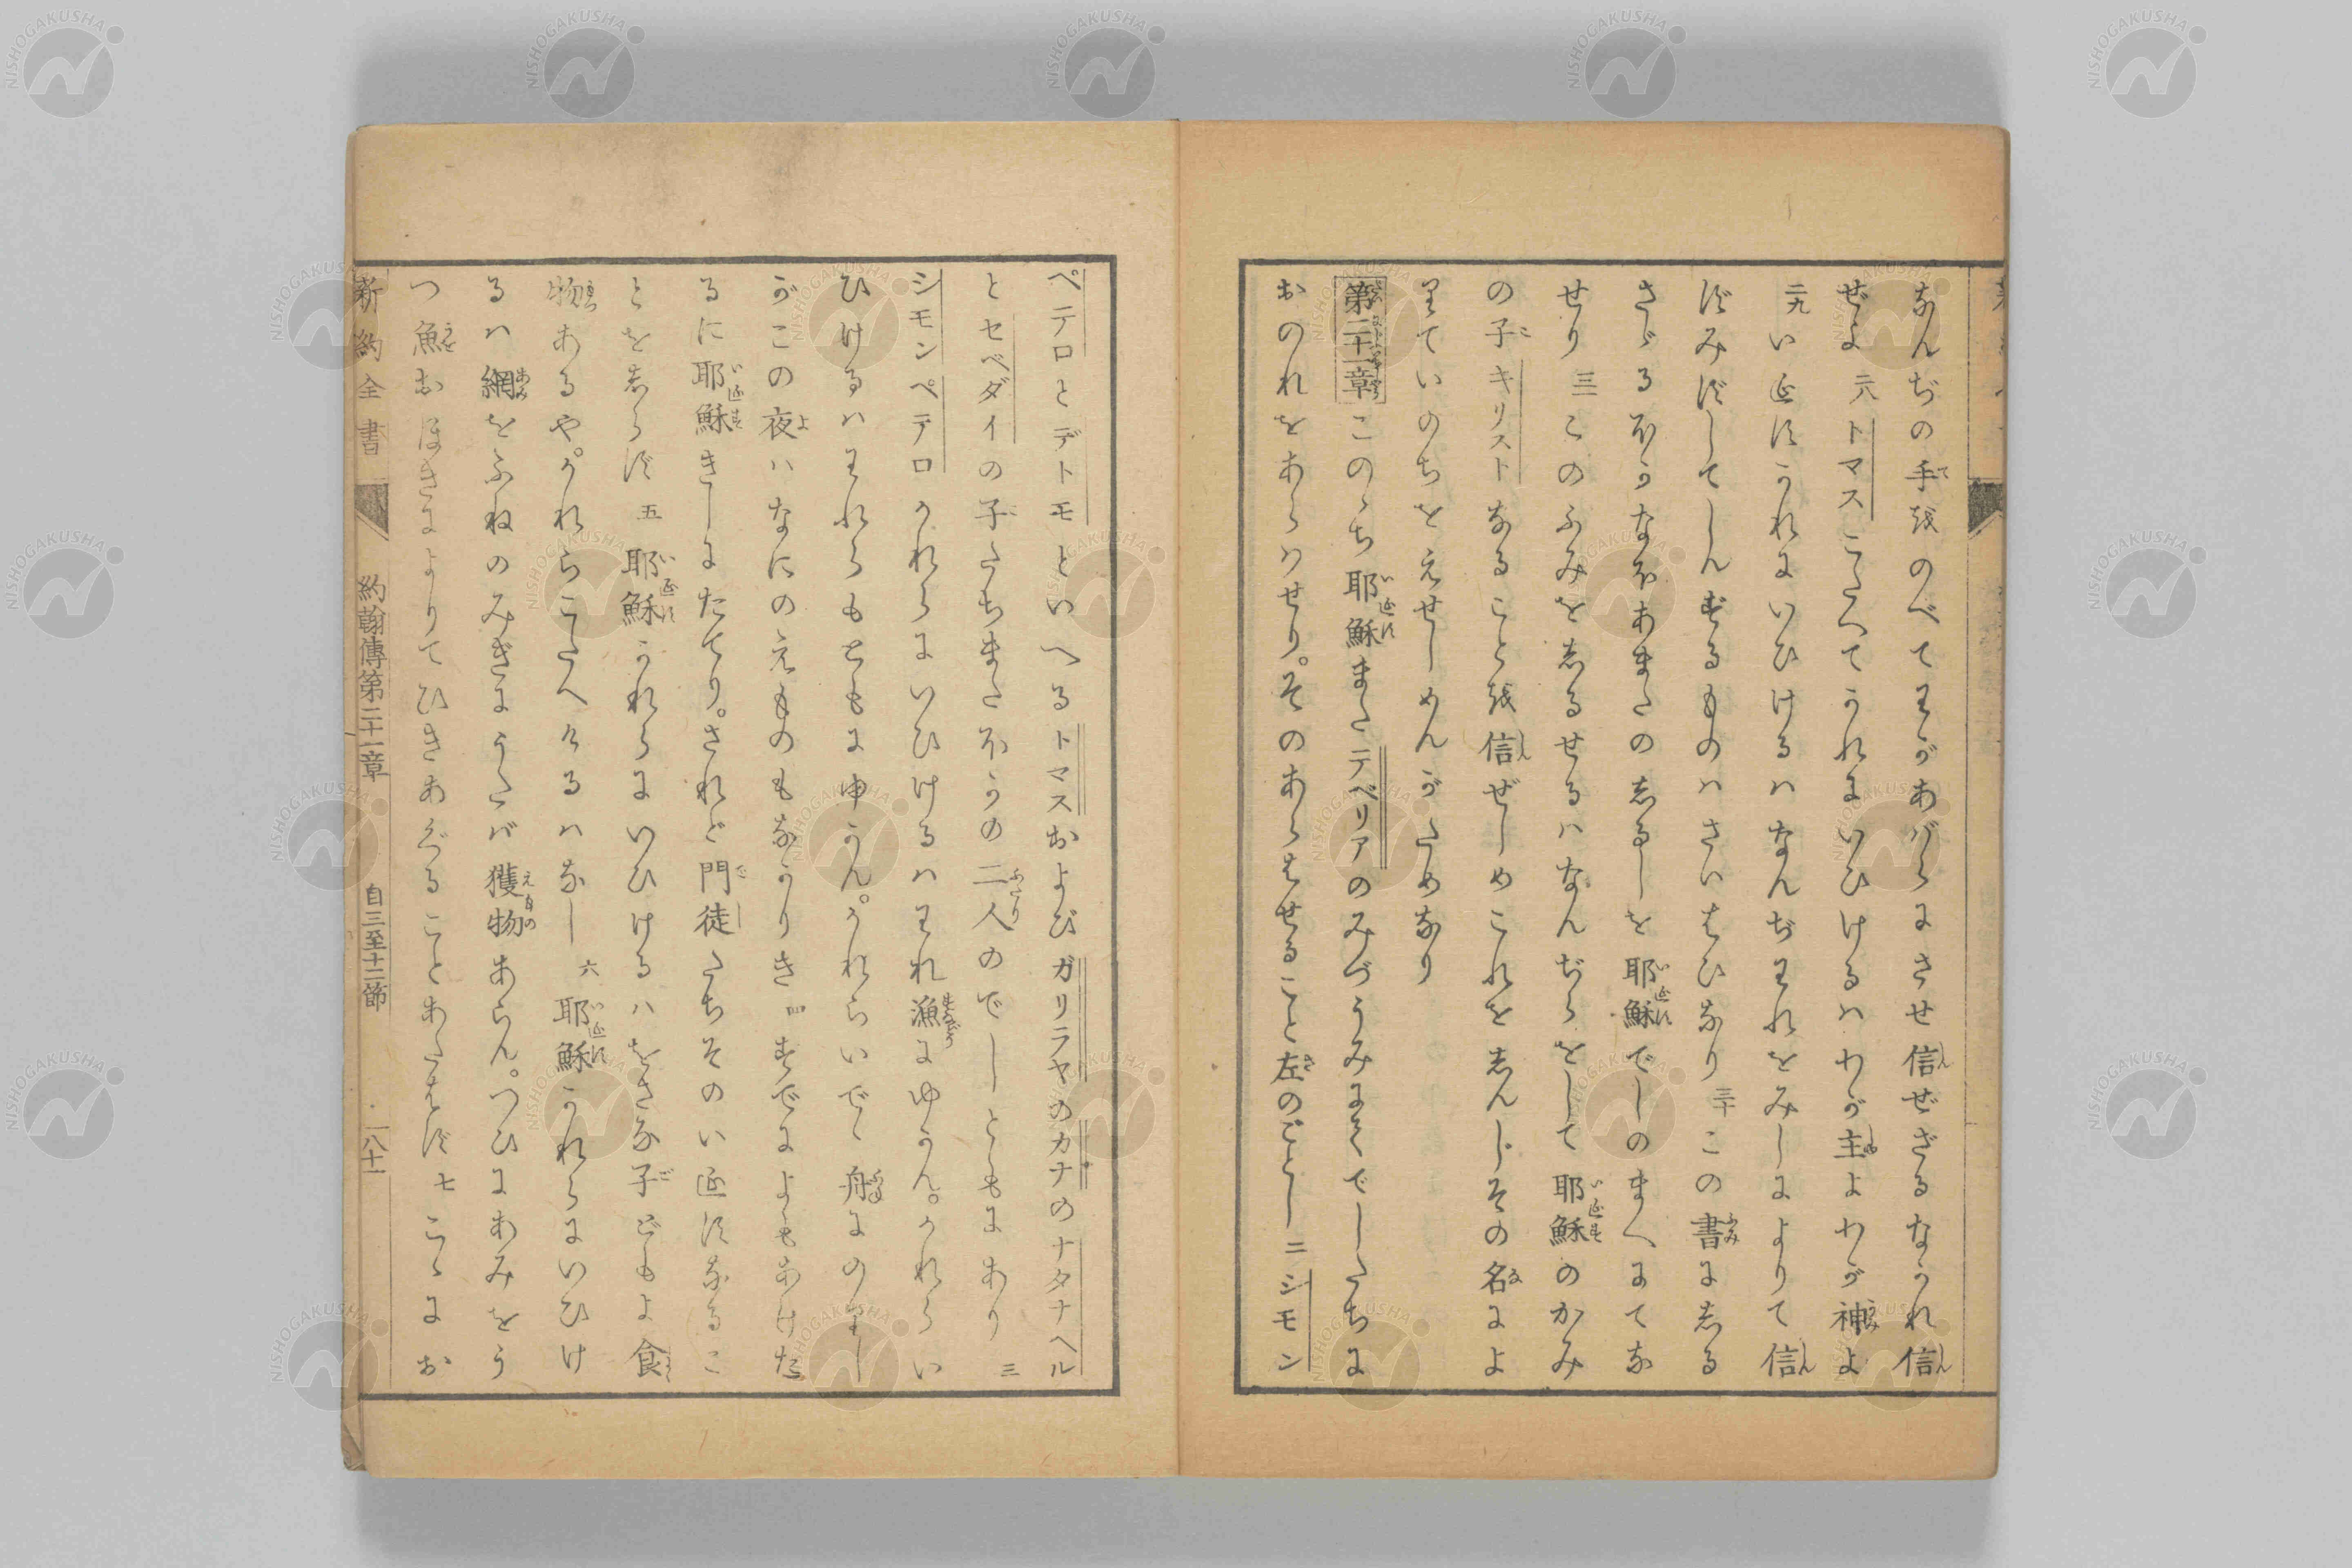 なんぢの手をのべてわがあばらにさせ信ぜざるなかれ信
ぜよ 二八 トマスこたへてかれにいひけるハわが主よわが神よ
二九 いゑすかれにいひけるハなんぢわれをみしによりて信
ずみずしてしんずるものハさいはひなり 三十 この書にしる
さゞるほかなほあまたのしるしを耶穌でしのまへにてな
せり 三一 このふみをしるせるハなんぢらをして耶穌のかみ
の子キリストなることを信ぜしめこれをしんじその名によ
りていのちをえせしめんがためなり
第二十一章 このゝち耶穌またテベリアのみづうみにてでしたちに
おのれをあらハせり。そのあらはせること左のごとし 二 シモン
ペテロとデトモといへるトマスおよびガリラヤのカナのナタナヘル
とセベダイの子たちまたほかの二人のでしともにあり 三
シモンペテロかれらにいひけるハわれ漁にゆかん。かれらい
ひけるハわれらもともに申かん。かれらいでゝ舟にのりし
がこの夜ハなにのえものもなかりき 四 すでによもあけた
るに耶穌きしにたてり。されど門徒たちそのいゑすなるこ
とをしらず 五 耶穌かれらにいひけるハをさな子どもよ食
物あるや。かれらこたへけるハなし 六 耶穌かれらにいひけ
るハ網をふねのみぎにうたバ獲物あらん。つひにあみをう
つ魚おほきによりてひきあぐることあたはず 七 こゝにお
新約全書 約翰傳第二十一章 自三至十二節 一八十一
NISHOGAKUSHA